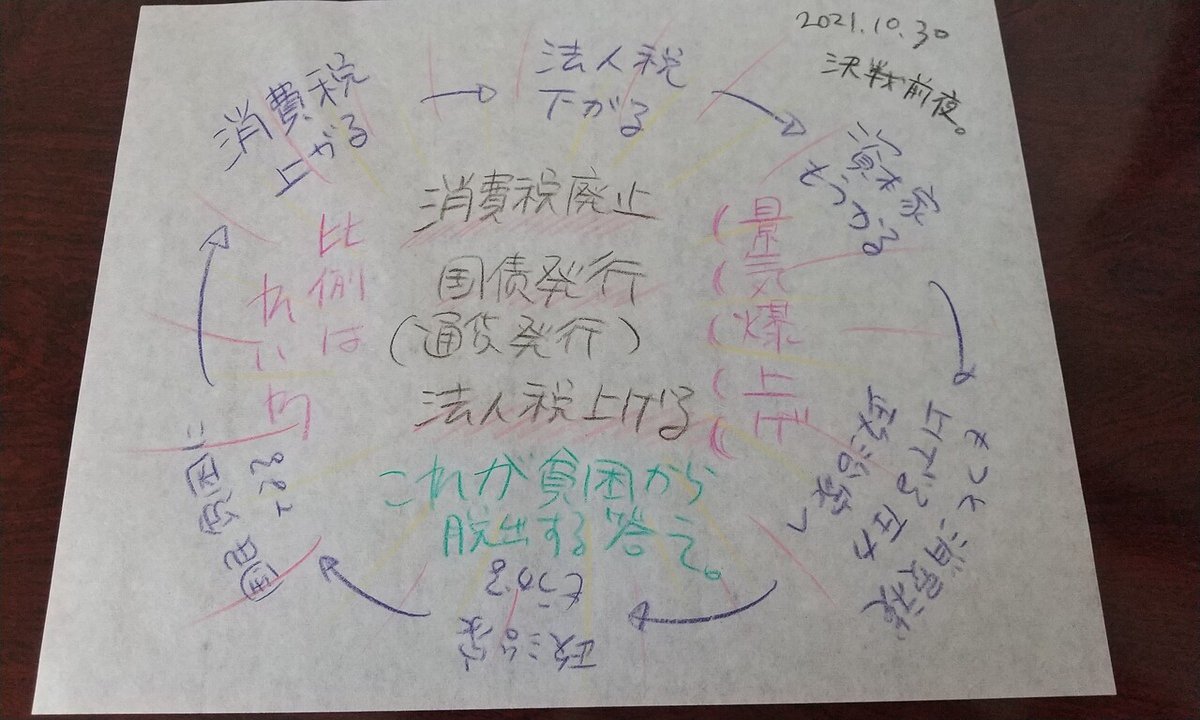 2021.10.30
決戦前夜。
消費税
上がる
法人税
下がる
資本家
もうかる
もっと消費税
上げる圧力
政治家へ
政治家
もうかる
国民貧困に
なる
消費税廃止
国債発行
(通貨発行)
法人税上げる
これが貧困から
脱出する答え。
比例は
れいわ
景気爆上げ